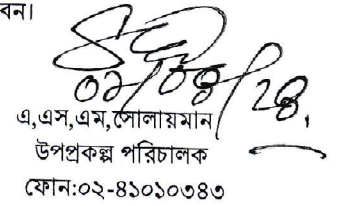 বন।
০১/০৪/২৪
এ,এস,এম,সোলায়মান
উপপ্রকল্প পরিচালক
ফোন:০২-৪১০১০৩৪৩